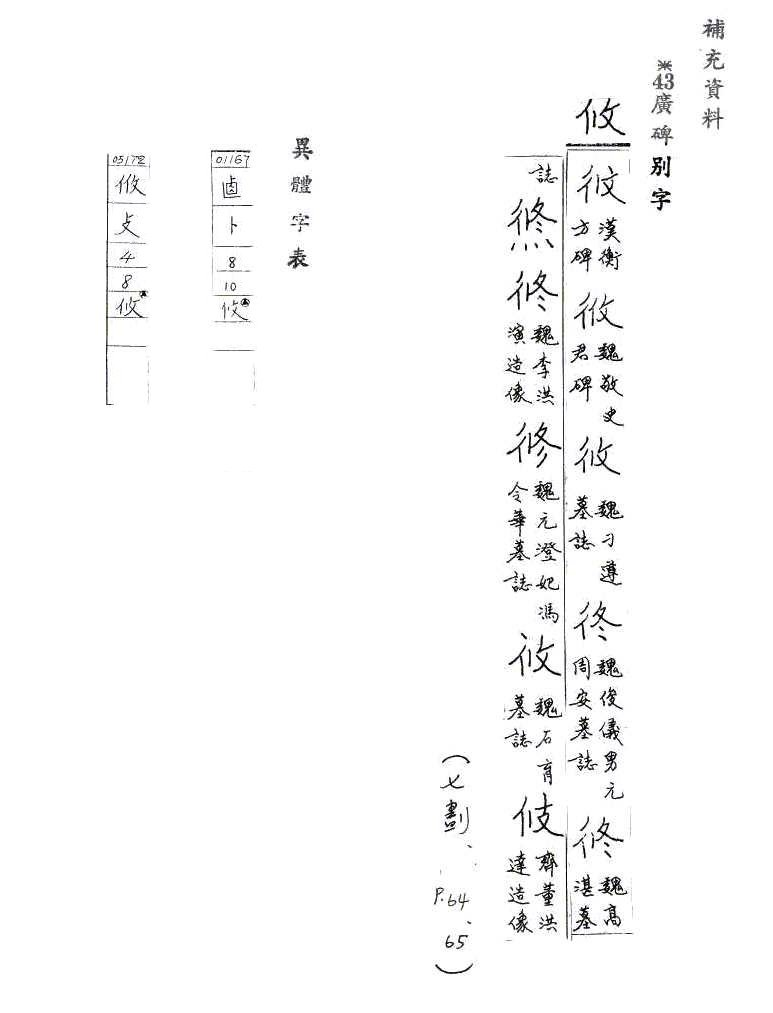 補充資料
※43廣碑別字
攸
㣈漢衡方碑
魏敬史君碑
魏刁遵墓誌
魏俊儀男元周安墓誌
魏高湛墓
誌
魏李洪演造像
修魏元澄妃馮令華墓誌
魏石育墓誌
伎齊董洪達造像
(七劃、P.64、65)
異體字表
01167
卣
卜
8
10
攸
05172
攸
攴
4
8
攸